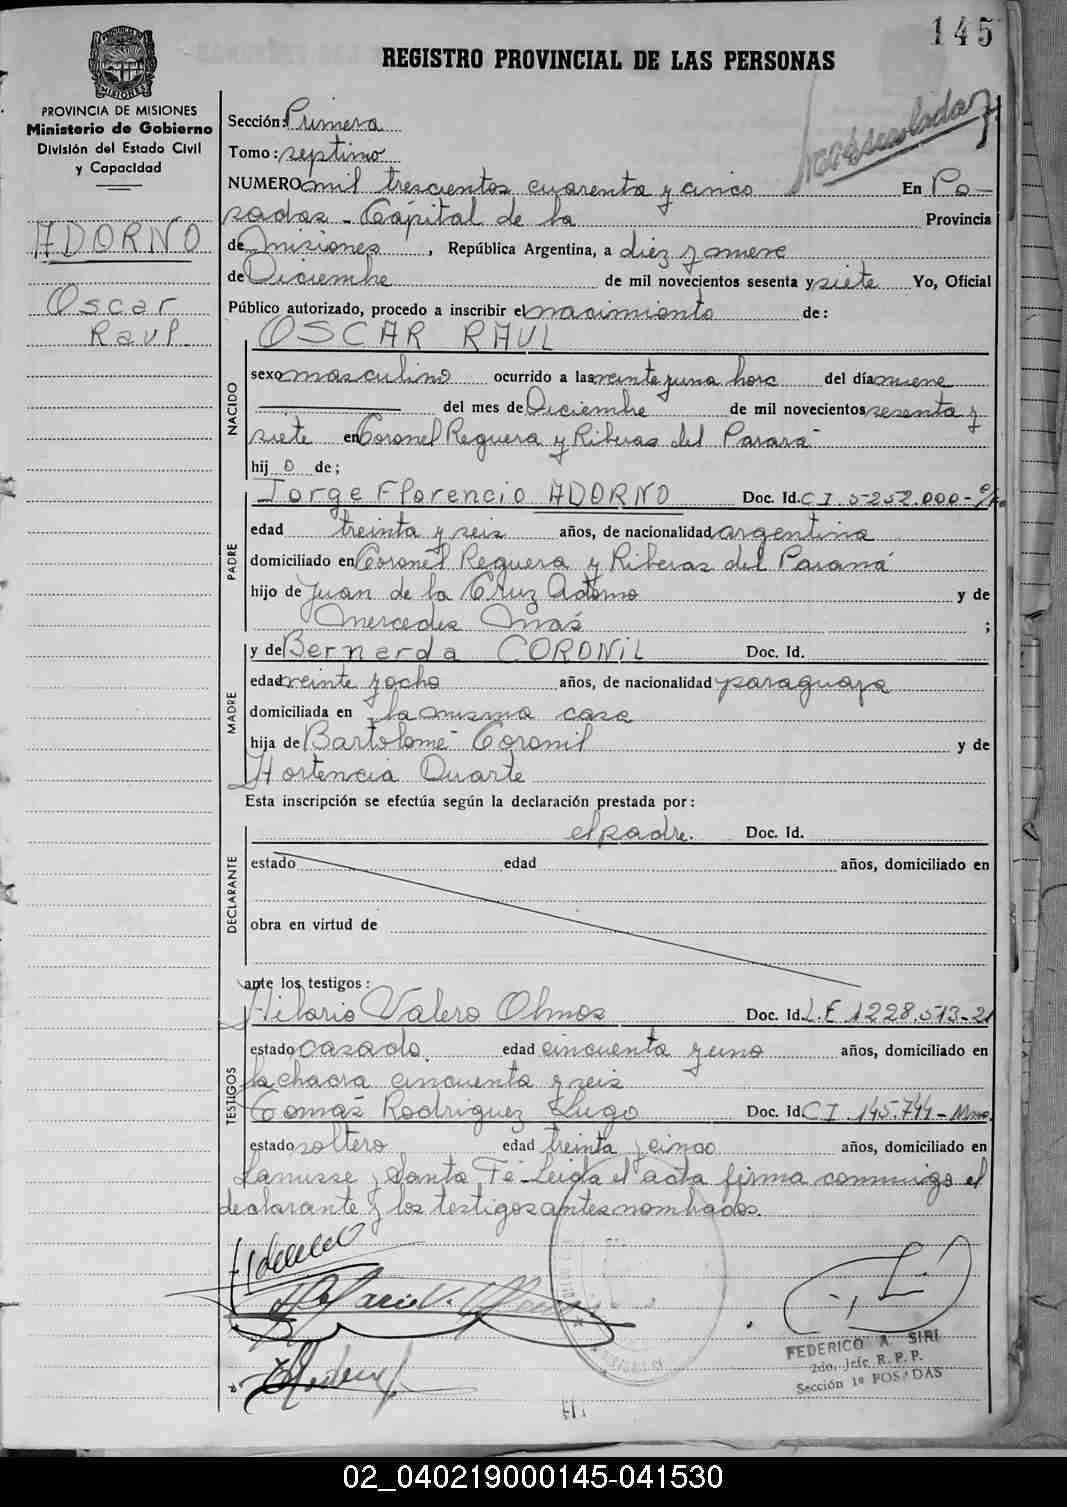 145
REGISTRO PROVINCIAL DE LAS PERSONAS
PROVINCIA DE MISIONES
Ministerio de Gobierno
División del Estado Civil
y Capacidad
ADORNO
Oscar
Raul.
Sección: Primera
Tomo: septimo
NUMERO mil trescientos cuarenta y cinco En Po-
sadas - Capital de la Provincia
de Misiones, República Argentina, a diez y nueve
de Diciembre de mil novecientos sesenta y siete Yo, Oficial
Público autorizado, procedo a inscribir el nacimiento de:
OSCAR RAUL
NACIDO
sexo masculino ocurrido a las veinte y una hora del día nueve
del mes de Diciembre de mil novecientos sesenta y
siete en Coronel Reguera y Riberas del Paraná
hij o de;
PADRE
Jorge Florencio ADORNO Doc. Id. C I. 5-252.000-
edad treinta y seis años, de nacionalidad argentina
domiciliado en Coronel Reguera y Riberas del Paraná
hijo de Juan de la Cruz Adorno y de
Mercedes ;
MADRE
y de Bernarda CORONIL Doc. Id.
edad veinte y ocho años, de nacionalidad paraguaya
domiciliada en la misma casa
hija de Bartolomé Coronil y de
Hortencia Duarte
Esta inscripción se efectúa según la declaración prestada por:
DECLARANTE
el padre. Doc. Id.
estado edad años, domiciliado en
obra en virtud de
ante los testigos:
TESTIGOS
Hilario Valero Olmos Doc. Id. L.E 1228.513-21
estado casado. edad cincuenta y uno años, domiciliado en
la chacra cincuenta y seis
Tomás Rodriguez Lugo Doc. Id. C I. 145.744-
estado soltero edad treinta y cinco años, domiciliado en
Lanusse y Santa Fé - Leida el acta firma conmigo el
declarante y los testigos antes nombrados.
FEDERICO A. SIRI
2do. Jefe R. P. P.
Sección 1ª POSADAS
02_040219000145-041530